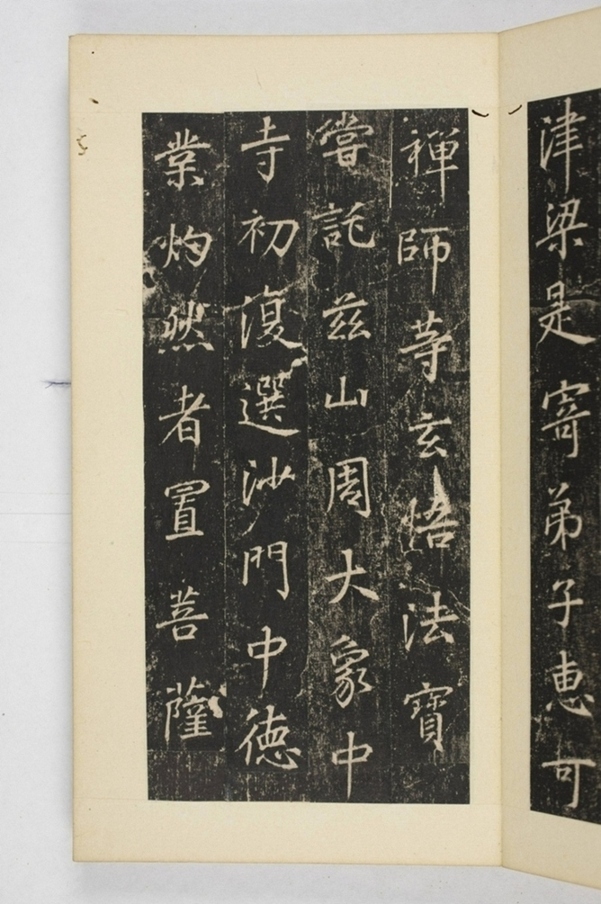 津梁是寄弟子惠可
禅師等玄悟法寶
嘗託兹山周大象中
寺初復選沙門中德
業灼然者置菩薩